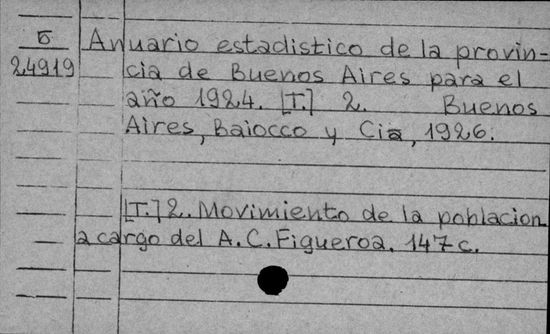 Б
24919
Anuario estadistico de la provin-
cia de Buenos Aires para el
año 1924. [T.] 2. Buenos
Aires, Baiocco y Cia, 1926.
[T.] 2. Movimiento de la poblacion
a cargo del A. C. Figueroa. 147 c.